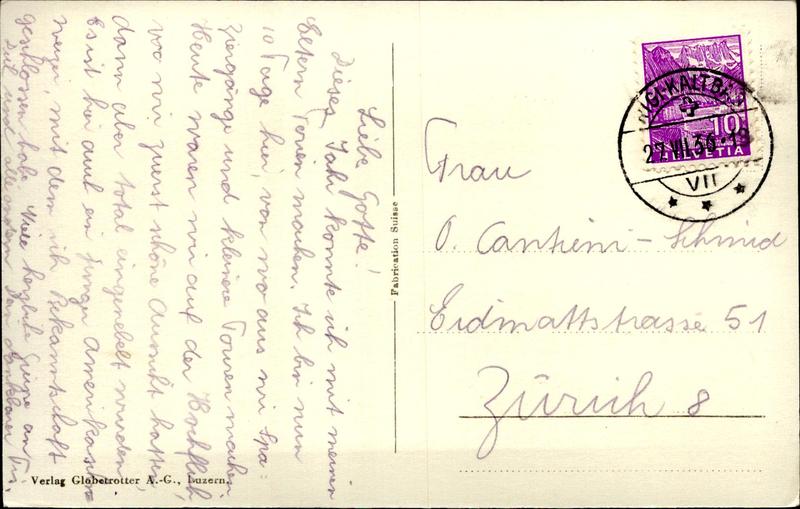 Liebe Gotte!
Dieses Jahr konnte ich mit meinen
Eltern Ferien machen. Ich bin nun
10 Tage hier, von wo aus wir Spa=
ziergänge und kleinere Touren machen.
Heute waren wir auf der Hochfluh,
wo wir zuerst schöne Aussicht hatten,
dann aber total eingenebelt wurden.
Es ist hier auch ein junger Amerikaschwei
weizer, mit dem ich Bekanntschaft
geschlossen habe. Viele herzliche Grüsse an
Dich und alle andern Dein dankbarer
Fabrication Suisse
Verlag Globetrotter A.-G., Luzern.
RIGI-KALTBAD
27.VII.36.-18
VII
10
HELVETIA
Frau
O. Cantieni-Schmid
Eidmattstrasse 51
Zürich 8